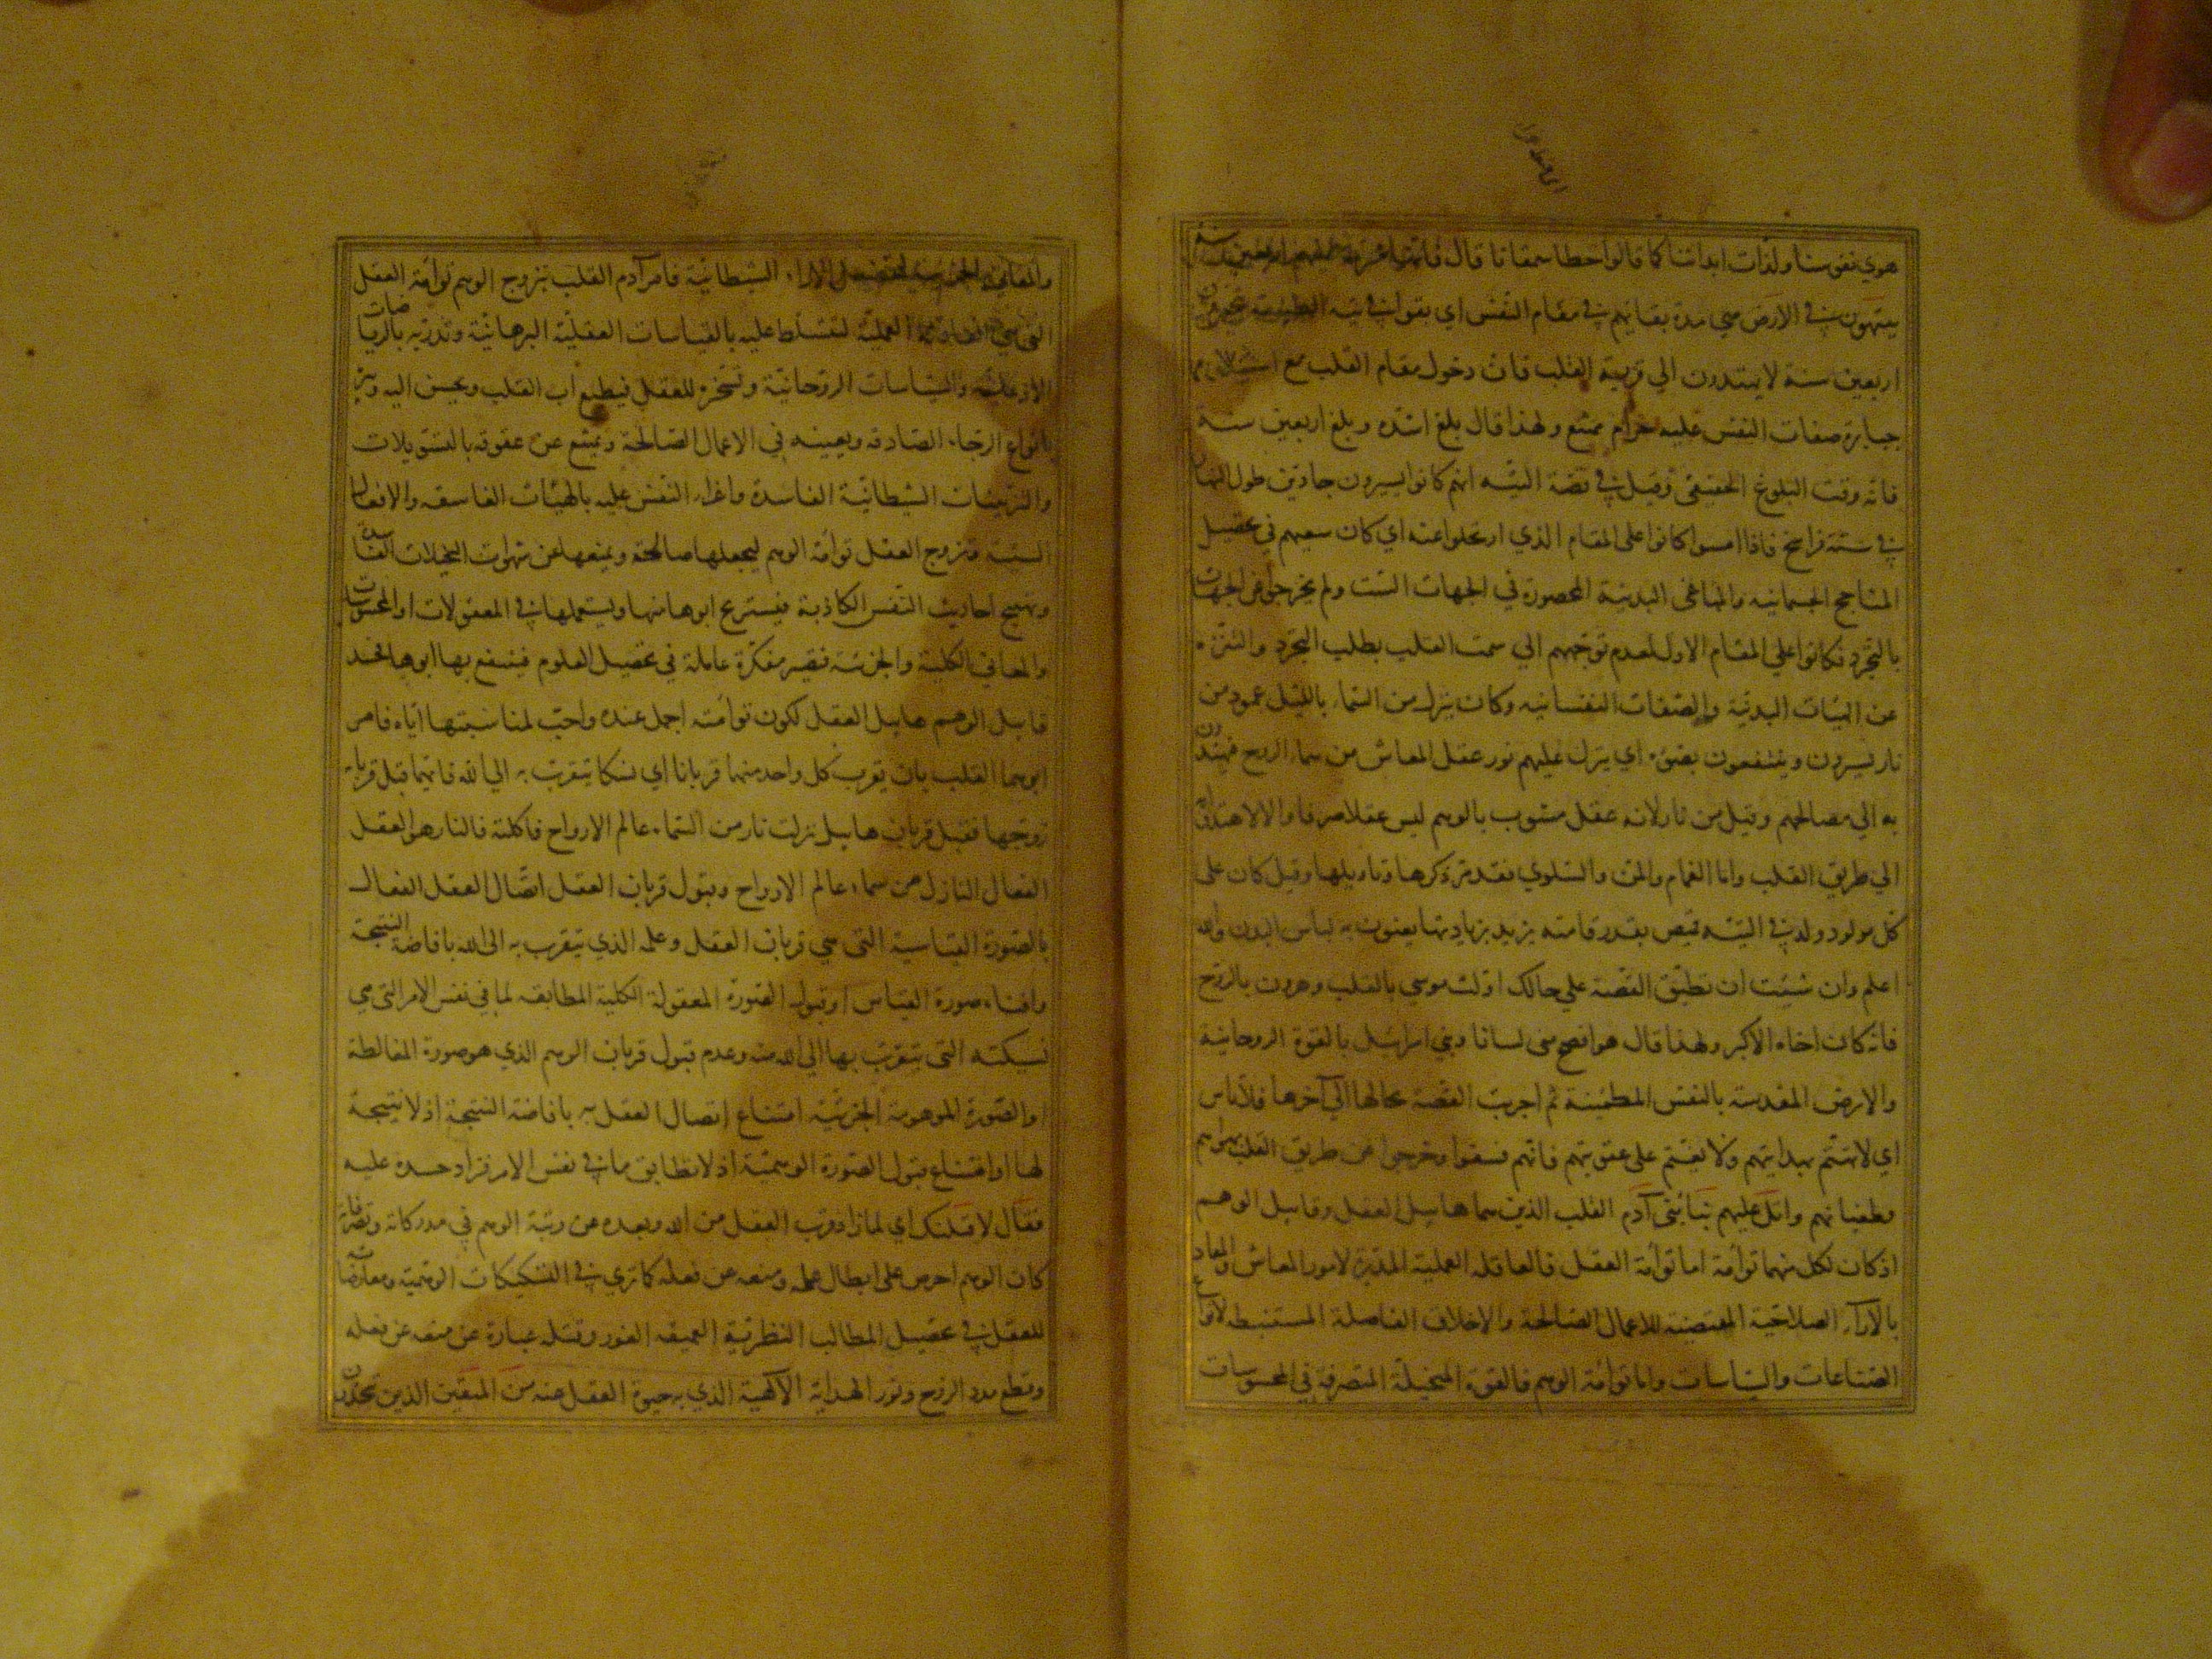 هوي نفوسنا ولذات ابداننا كما قالوا حطا سمقاثا قال فانها محرمة عليهم اربعين سنة
يتيهون في الارض هي مدة بقائهم في مقام النفس اي بقوا في تيه الطبيعة
اربعين سنة لا يهتدون الي قرية القلب فان دخول مقام القلب مع استيلاء
جبابرة صفات النفس عليه حرام ممتنع ولهذا قال بلغ اشده وبلغ اربعين سنة
فانه وقت البلوغ الحقيقي وقيل في قصة التيه انهم كانوا يسيرون جادين طول النهار
في ستة فراسخ فاذا امسوا كانوا علي المقام الذي ارتحلوا عنه اي كان سعيهم في تحصيل
المناجح الجسمانيه والمباغي البدنية المحصورة في الجهات الست ولم يخرجوا عن الجهات
بالتجرد فكانوا علي المقام الاول لعدم توجههم الي سمت القلب بطلب التجرد والتنزه
عن الهيئات البدنية والصفات النفسانيه وكان ينزل من السماء بالليل عمود من
نار يسيرون وينتفعون بضوءه اي ينزل عليهم نور عقل المعاش من سماء الروح فيهتدون
به الي مصالحهم وقيل من نار لانه عقل مشوب بالوهم ليس عقلا صرفا والا لاهتدوا
الي طريق القلب واما الغمام والمن والسلوي فقد مر ذكرها وتاويلها وقيل كان على
كل مولود ولد في التيه قميص بقدر قامته يزيد بزيادتها يعنون به لباس البدن والله
اعلم وان شئت ان تطبق القصة علي حالك اولت موسي بالقلب وهرون بالروح
فانه كان اخاه الاكبر ولهذا قال هو افصح مني لسانا وبني اسرائيل بالقوة الروحانية
والارض المقدسة بالنفس المطمئنة ثم اجريت القصة بحالها الي آخرها فلا تاس
اي لا تهتم بهدايتهم ولا تغتم على عقوبتهم فانهم فسقوا وخرجوا عن طريق القلب بهواهم
وطغيانهم واتل عليهم نبا ابني آدم القلب الذين هما هابيل العقل وقابيل الوهم
اذ كان لكل منهما توأمة اما توأمة العقل فالعاقلة العملية المدبرة لامور المعاش والمعاد
بالآراء الصلاحية المقتضية للاعمال الصالحة والاخلاق الفاضلة المستنبطه لانواع
الصناعات والسياسات واما توأمة الوهم فالقوة المتخيلة المتصرفة في المحسوسات
والمعاني الجزئية لتحصيل الاراء الشيطانية فامر آدم القلب بتزوج الوهم توأمة العقل
التي هي العاقلة العملية لتتسلط عليه بالقياسات العقلية البرهانية وتدربه بالرياضات
الاذعانية والسياسات الروحانية وتسخره للعقل فيطيع اب القلب ويحسن اليه ويبره
بانواع الرجاء الصادقه ويعينه في الاعمال الصالحة ويمتنع عن عقوقه بالتسويلات
والتزيينات الشيطانية الفاسدة واغراء النفس عليه بالهيئات الفاسقه والافعال
السيئة وتزوج العقل توأمة الوهم ليجعلها صالحة ويمنعها عن شهوات التخيلات الفاسدة
وتهييج احاديث النفس الكاذبة فيستريح ابوها منها ويستعملها في المعقولات او المحسوسات
والمعاني الكلية والجزئية فيصير مفكرة عاملة في تحصيل العلوم فينتفع بها ابوها فحسد
قابيل الوهم هابيل العقل لكون توأمته اجمل عنده واحب لمناسبتها اياه فامر
ابوهما القلب بان يقرب كل واحد منهما قربانا اي نسكا يتقرب به الي الله فايهما قبل قربانه
زوجها فقبل قربان هابيل نزلت نار من السماء عالم الارواح فاكلته فالنار هو العقل
الفعال النازل من سماء عالم الارواح وقبول قربان العقل اتصال العقل الفعال
بالصورة القياسية التي هي قربان العقل وعلمه الذي يتقرب به الى الله بافاضة النتيجة
وافناء صورة القياس او قبول الصورة المعقولة الكلية المطابقه لما في نفس الامر التي هي
نسيكته التي يتقرب بها الي الله منه وعدم قبول قربان الوهم الذي هو صورة المغالطة
او الصورة الموهومة الجزئية امتناع اتصال العقل به بافاضة النتيجة اذ لا نتيجة
لها او امتناع قبول الصورة الوهمية اذ لا تطابق ما في نفس الامر فزاد حسده عليه
فقال لاقتلنك اي لما زاد قرب العقل من الله وبعده عن رتبة الوهم في مدركاته وتصرفاته
كان الوهم احرص على ابطال عمله ومنعه عن فعله كما تري في التشكيكات الوهمية ومعارضاته
للعقل في تحصيل المطالب النظرية العميقه الغور وقتله عبارة عن منعه عن فعله
وقطع مدد الروح ونور الهداية الالهية الذي به حيوة العقل عنه من المتقين الذين يتخذون